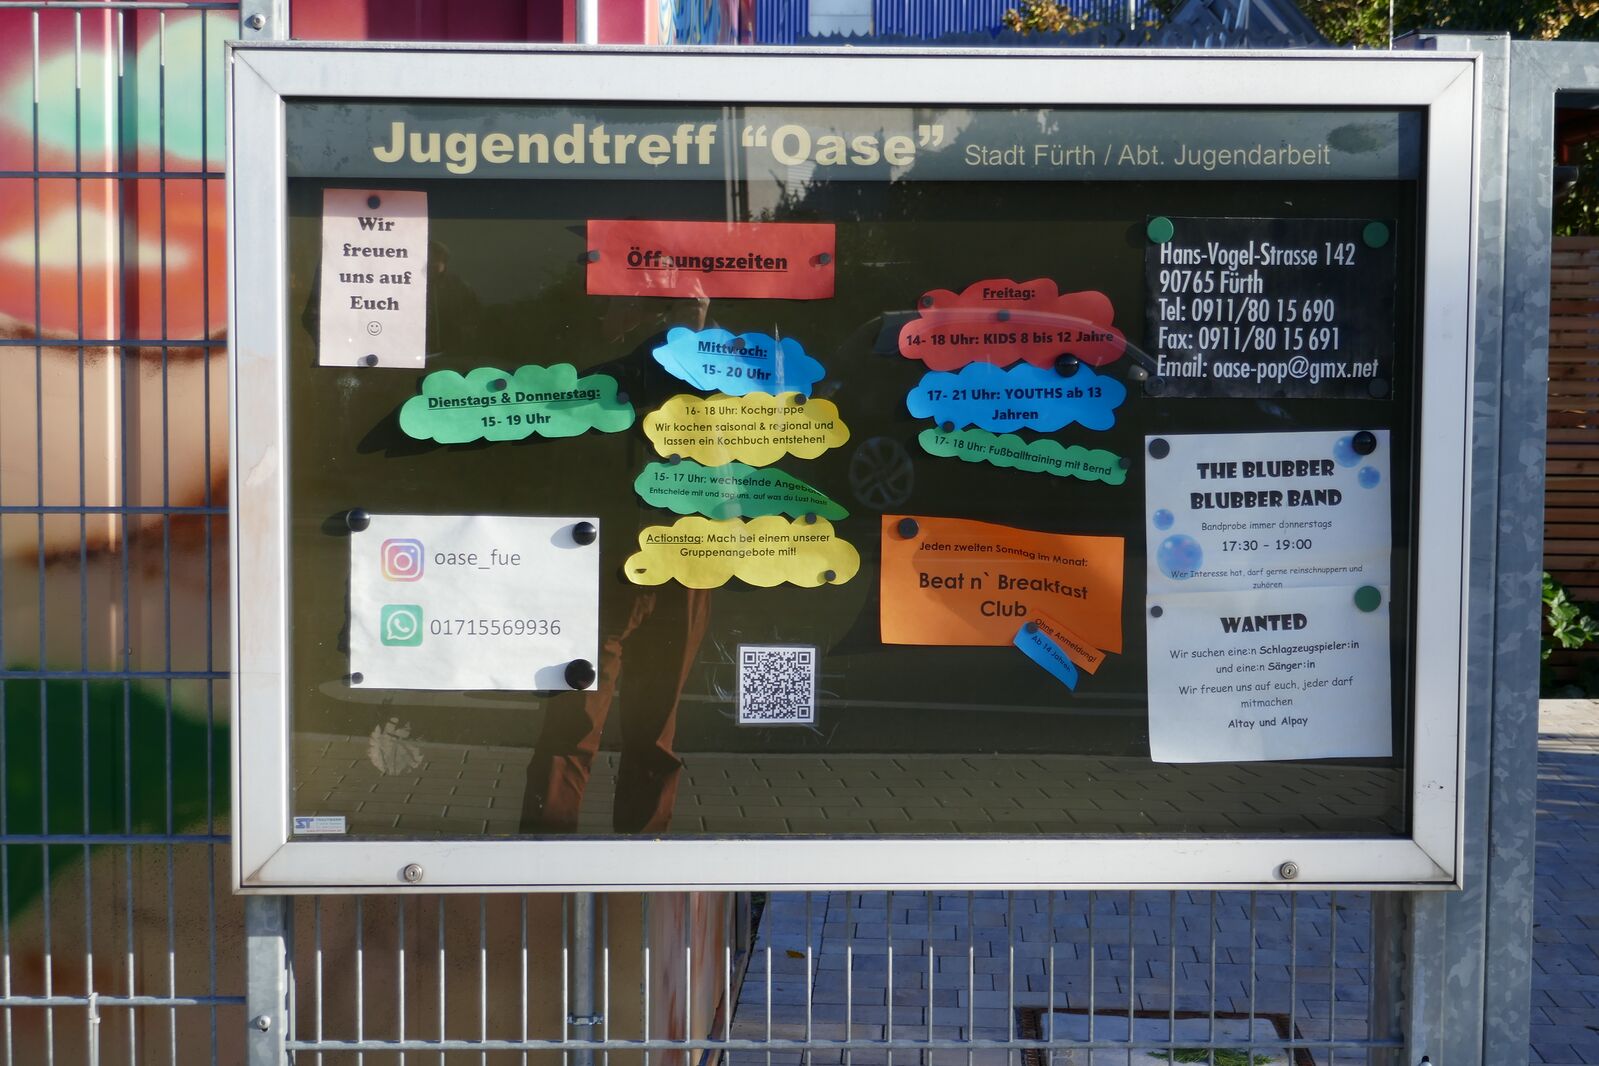 Jugendtreff “Oase” Stadt Fürth / Abt. Jugendarbeit
Wir
freuen
uns auf
Euch
☺
Öffnungszeiten
Dienstags & Donnerstag:
15- 19 Uhr
Mittwoch:
15- 20 Uhr
16- 18 Uhr: Kochgruppe
Wir kochen saisonal & regional und
lassen ein Kochbuch entstehen!
15- 17 Uhr: wechselnde Angebote
Entscheide mit und sag uns, auf was du Lust hast!
Actionstag: Mach bei einem unserer
Gruppenangebote mit!
Freitag:
14- 18 Uhr: KIDS 8 bis 12 Jahre
17- 21 Uhr: YOUTHS ab 13
Jahren
17- 18 Uhr: Fußballtraining mit Bernd
Jeden zweiten Sonntag im Monat:
Beat n` Breakfast
Club
Ohne Anmeldung!
Ab 14 Jahren
oase_fue
01715569936
Hans-Vogel-Strasse 142
90765 Fürth
Tel: 0911/80 15 690
Fax: 0911/80 15 691
Email: oase-pop@gmx.net
THE BLUBBER
BLUBBER BAND
Bandprobe immer donnerstags
17:30 - 19:00
Wer Interesse hat, darf gerne reinschnuppern und
zuhören
WANTED
Wir suchen eine:n Schlagzeugspieler:in
und eine:n Sänger:in
Wir freuen uns auf euch, jeder darf
mitmachen
Altay und Alpay
ST